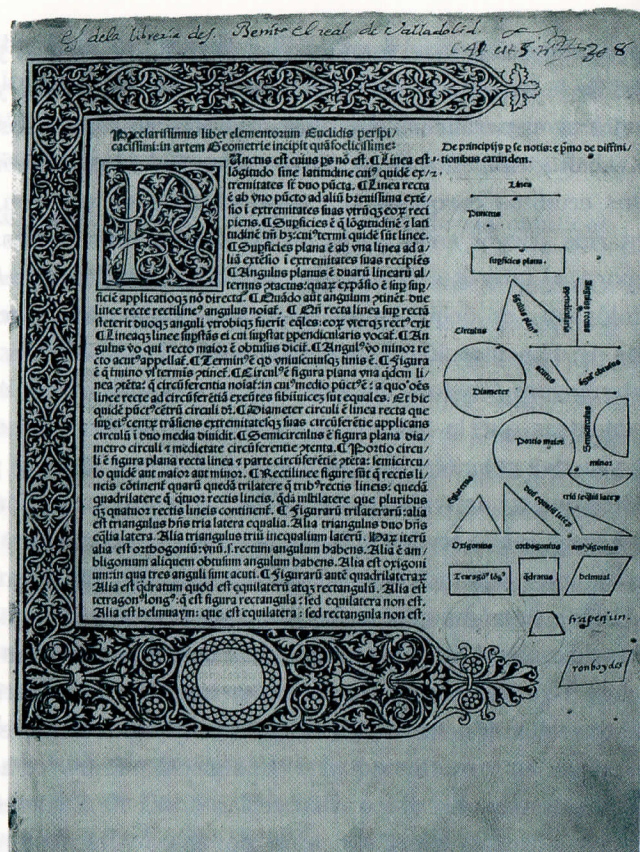 es dela libreria de S. Benito el real de Valladolid.
Preclarissimus liber elementorum Euclidis perspi/
cacissimi: in artem Geometrie incipit quãfoelicissime:
Punctus est cuius ps nõ est. ¶ Linea est
lõgitudo sine latitudine cuiꝰ quidẽ ex/
tremitates sũt duo pũcta. ¶ Linea recta
ẽ ab vno pũcto ad aliũ breuissima extẽ/
sio ĩ extremitates suas vtrũqꝫ eoꝝ reci
piens. ¶ Supficies ẽ q̃ lõgitudinẽ ⁊ lati
tudinẽ tm̃ hꝫ: cuiꝰ termi quidẽ sũt linee.
¶ Supficies plana ẽ ab vna linea ad a/
liã extẽsio ĩ extremitates suas recipiẽs
¶ Angulus planus ẽ duarũ linearũ al/
ternus ꝯtactus: quaꝝ expãsio ẽ sup sup/
ficiẽ applicatioqꝫ nõ directa. ¶ Quãdo aut angulum ꝯtinẽt due
linee recte rectilineꝰ angulus noiat̃. ¶ Qñ recta linea sup rectã
steterit duoqꝫ anguli vtrobiqꝫ fuerit eq̃les: eoꝝ vterqꝫ rectꝰ erit
¶ Lineaqꝫ linee supstãs ei cui supstat ppendicularis vocat̃. ¶ An
gulus vo qui recto maior ẽ obtusus dicit̃. ¶ Angulꝰ vo minor re
cto acutꝰ appellat̃. ¶ Terminꝰ ẽ qd vniuscuiusqꝫ finis ẽ. ¶ Figura
ẽ q̃ tmino vl terminis ꝯtinet̃. ¶ Circulꝰ ẽ figura plana vna qdem li/
nea ꝯtẽta: q̃ circũferentia noiat̃: in cuiꝰ medio pũctꝰ ẽ: a quo oẽs
linee recte ad circũferẽtiã exeũtes sibiinuicẽ sut equales. Et hic
quidẽ pũctꝰ cẽtrũ circuli dr̃. ¶ Diameter circuli ẽ linea recta que
sup eiꝰ centꝝ trãsiens extremitatesqꝫ suas circũferẽtie applicans
circulũ ĩ duo media diuidit. ¶ Semicirculus ẽ figura plana dia/
metro circuli ⁊ medietate circũferentie ꝯtenta. ¶ Portio circu/
li ẽ figura plana recta linea ⁊ parte circũferẽtie ꝯtẽta: semicircu/
lo quidẽ aut maior aut minor. ¶ Rectilinee figure sũt q̃ rectis li/
neis cõtinent̃ quarũ quedã trilatere q̃ tribꝰ rectis lineis: quedã
quadrilatere q̃ qtuor rectis lineis. qdã mltilatere que pluribus
qꝫ quatuor rectis lineis continent̃. ¶ Figurarũ trilaterarũ: alia
est triangulus hñs tria latera equalia. Alia triangulus duo hñs
eq̃lia latera. Alia triangulus triũ inequalium laterũ. Haꝝ iterũ
alia est orthogoniũ: vnũ .s. rectum angulum habens. Alia ẽ am/
bligonium aliquem obtusum angulum habens. Alia est oxigoni
um: in qua tres anguli sunt acuti. ¶ Figurarũ autẽ quadrilateraꝝ
Alia est qdratum quod est equilaterũ atqꝫ rectangulũ. Alia est
tetragonꝰ longꝰ: q̃ est figura rectangula: sed equilatera non est.
Alia est helmuaym: que est equilatera: sed rectangula non est.
De principijs p se notis: ⁊ pmo de diffini/
tionibus earundem.
Linea
Punctus
supficies plana.
Circulus
Diameter
Portio maior
Semicirculus
minor
Oxigonius
orthogonius
ambligonius
Tetragonꝰ lõgꝰ
q̃dratus
helmuai
trapezium.
romboydes